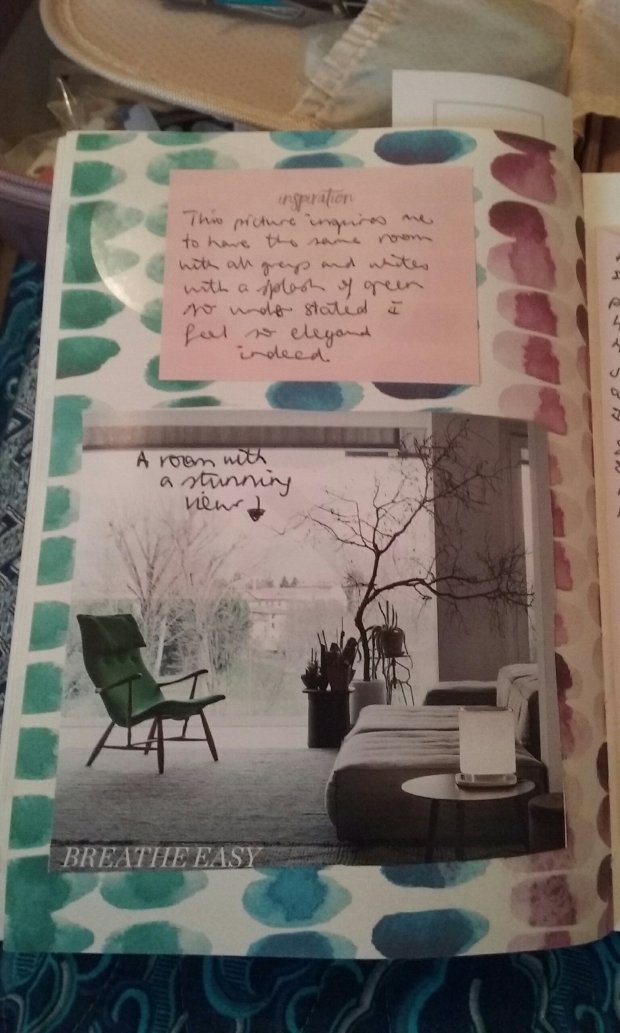 inspiration
This picture inquires me
to have the same room
with all greys and whites
with a splash of green
so under stated I
feel so elegand
indeed
A room with
a stunning
view
BREATHE EASY